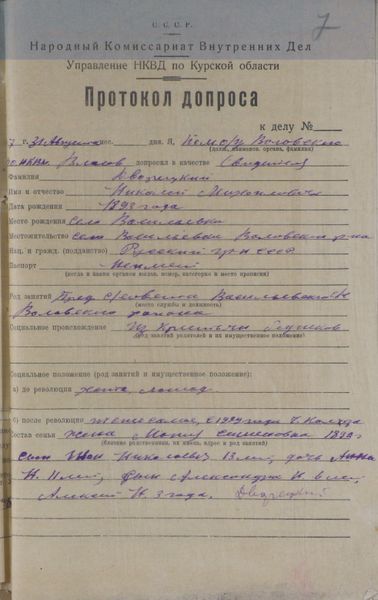 7
С. С. С. Р.
Народный Комиссариат Внутренних Дел
Управление НКВД по Курской области
Протокол допроса
к делу №
7 г. 31 Августа мес. дня. Я, Воловского
(должн. наименов. органа, фамилия)
НКВД Власов допросил в качестве свидетеля
Фамилия Дворецкий
Имя и отчество Николай Миронович
Дата рождения 1893 года
Место рождения село Васильевка
Местожительство село Васильевка Воловского р-на
Нац. и гражд. (подданство) Русский гр-н СССР
Паспорт
(когда и каким органом выдан, номер, категория и место прописки)
Род занятий Пред. с/совета Васильевского
(место службы и должность)
Воловского района
Социальное происхождение Из крестьян
(род занятий родителей и их имущественное положение)
Социальное положение (род занятий и имущественное положение):
а) до революции хата, лошад
б) после революции тоже самое, с 1929 года
Состав семьи жена Семеновна 1898
(близкие родственники, их имена, адрес и род занятий)
сын Иван Николаевич 13 лет, дочь Анна
Н. 11 лет, Александра Н. 6 лет,
Алексей Н. 3 года. Дворецкий